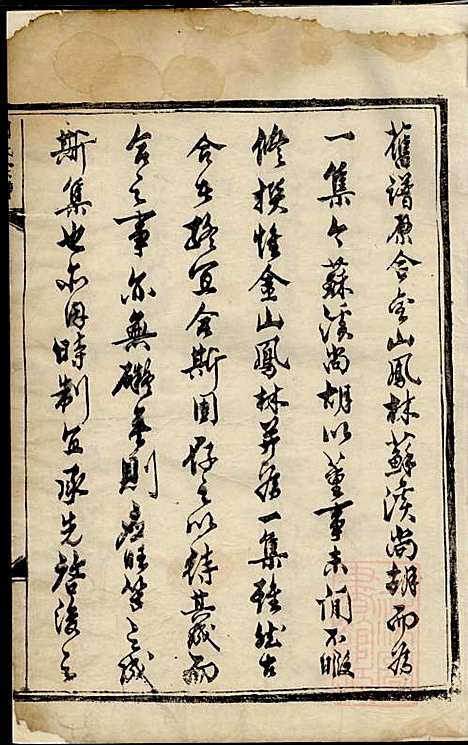 舊譜原合金山鳳林蘇溪尚胡而為
一集今蘇溪尚胡以董事未閒不暇
修撰惟金山鳳林並為一集雖然古
合者宜合斯固存之以待其成而
合之事亦無礙無則
斯集也亦因時制宜承先啓後之